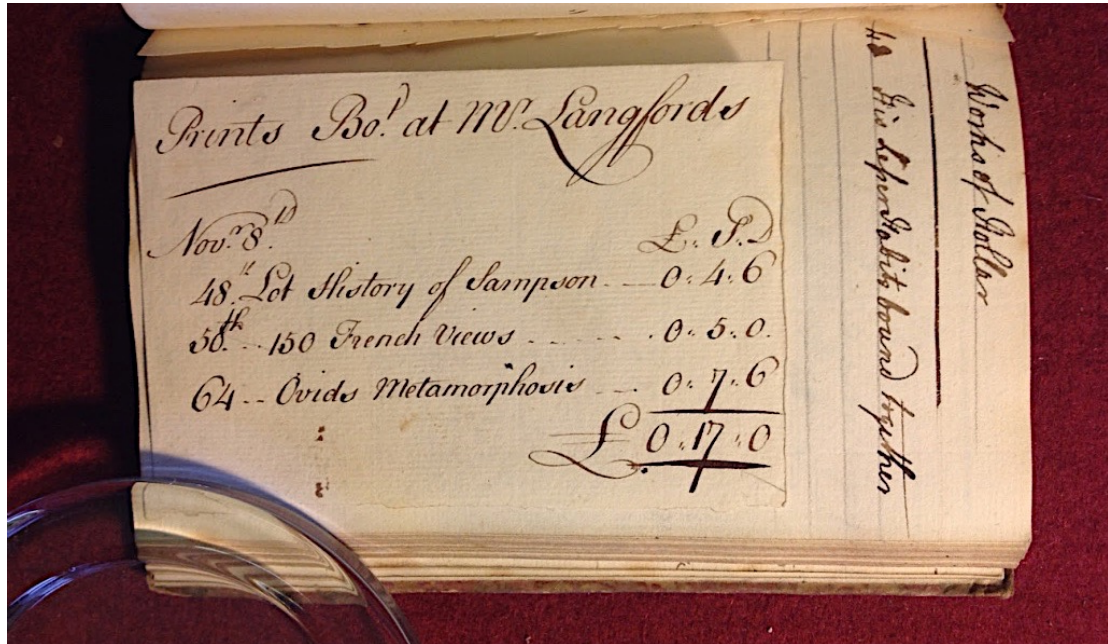 Prints Bo.t at Mr. Langfords
Novr. 8th £. S. D
48.th Lot History of Sampson - - 0 : 4 : 6
50.th - - 150 French Views - - - - - 0 : 5 : 0.
64 - - Ovids Metamorphosis - - 0 : 7 : 6
£. 0 : 17 : 0
Works of Hollar
His Habits bound together